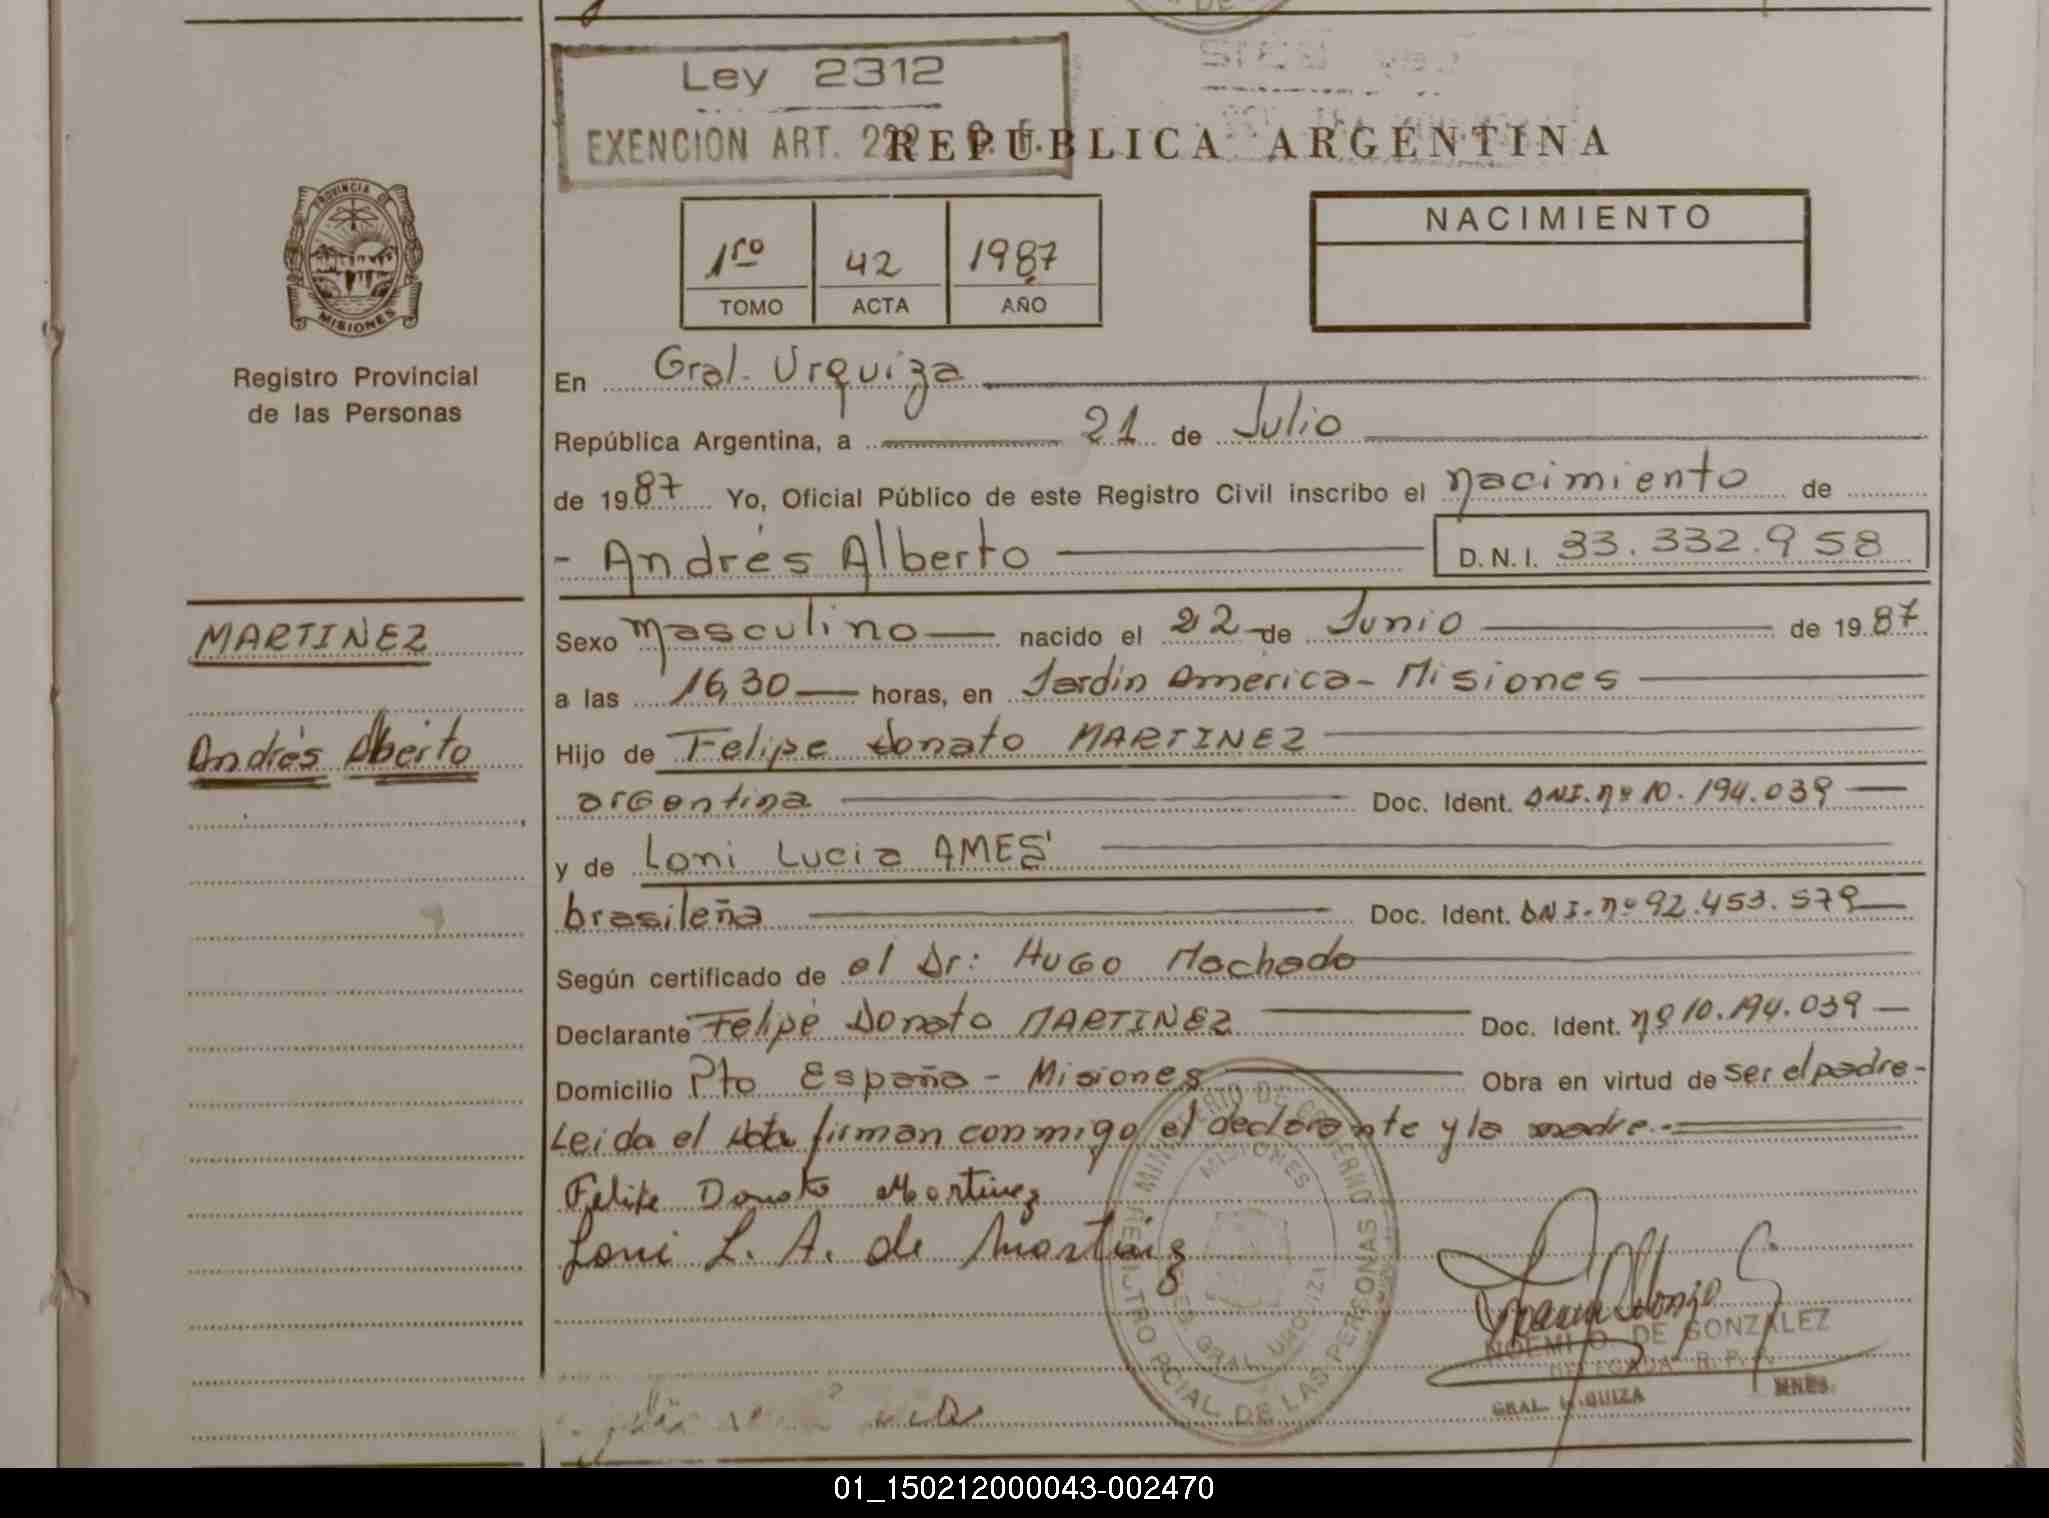 Ley 2312
EXENCION ART. 222
REPUBLICA ARGENTINA
PROVINCIA DE
MISIONES
Registro Provincial
de las Personas
1ro 42 1987
TOMO ACTA AÑO
NACIMIENTO
En Gral. Urquiza
República Argentina, a 21 de Julio
de 1987 Yo, Oficial Público de este Registro Civil inscribo el nacimiento de
- Andrés Alberto
D.N.I. 33.332.958
MARTINEZ
Andrés Alberto
Sexo Masculino nacido el 22 de Junio de 1987
a las 16,30 horas, en Jardín América - Misiones
Hijo de Felipe Donato MARTINEZ
argentina Doc. Ident. DNI. nº 10.194.039
y de Loni Lucia AMES
brasileña Doc. Ident. DNI. nº 92.453.579
Según certificado de el Dr: Hugo Machado
Declarante Felipe Donato MARTINEZ Doc. Ident. nº 10.194.039
Domicilio Pto España - Misiones Obra en virtud de ser el padre -
Leida el Acta firman conmigo el declarante y la madre.-
Felipe Donato Martinez
Loni L. A. de Martinez
MINISTERIO DE GOBIERNO
MISIONES
GRAL. URQUIZA
REGISTRO PCIAL. DE LAS PERSONAS
NOEMI O. DE GONZALEZ
DELEGADA R.P.P.
GRAL. URQUIZA MNES.
01_150212000043-002470